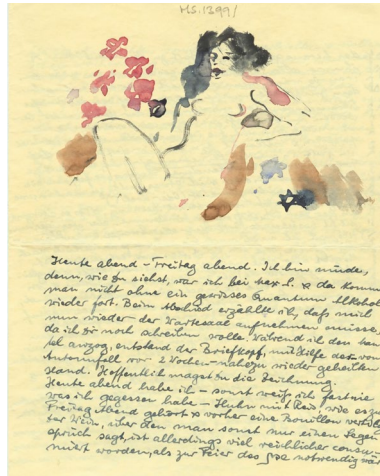 HS.1399/
Heute abend – Freitag abend. Ich bin müde,
denn, wie Du siehst, war ich bei Max L. & da kommt
man nicht ohne ein gewisses Quantum Alkohol
wieder fort. Beim Abschied erzählte ich, dass mich
nun wieder der Wartesaal aufnehmen müsse,
da ich Dir noch schreiben wolle. Während ich den
anzog, entstand der Briefkopf, mit Hilfe des vom
Autounfall vor 2 Wochen nahezu wieder geheilten
Hand. Hoffentlich magst Du die Zeichnung.
Heute abend habe ich – sonst weiss ich fast nie
was ich gegessen habe – Huhn mit Reis, wie es zum
Freitag Abend gehört & vorher eine Bouillon
Wein, über den man sonst nur einen Segen
spruch sagt, ist allerdings viel reichlicher
miert worden, als zur Feier des notwendig